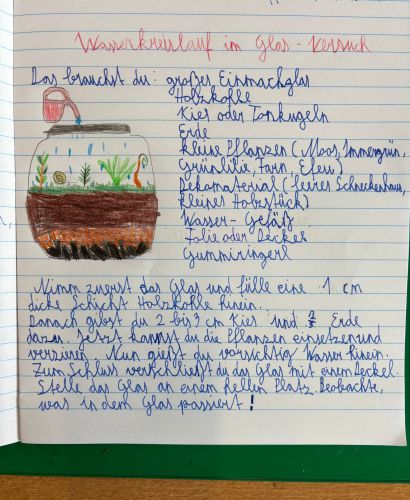 Wasserkreislauf im Glas - Versuch
Das brauchst du: großes Einmachglas
Holzkohle
Kies oder Tonkugeln
Erde
kleine Pflanzen (Moos, Immergrün,
Grünlilie, Farn, Efeu)
Dekomaterial (leeres Schneckenhaus,
kleines Holzstück)
Wasser - Gefäß
Folie oder Deckel
Gummiringerl
Nimm zuerst das Glas und fülle eine 1 cm
dicke Schicht Holzkohle hinein.
Danach gibst du 2 bis 3 cm Kies und Erde
dazu. Jetzt kannst du die Pflanzen einsetzen und
verzieren. Nun gießt du vorsichtig Wasser hinein.
Zum Schluss verschließt du das Glas mit einem Deckel.
Stelle das Glas an einem hellen Platz. Beobachte,
was in dem Glas passiert!